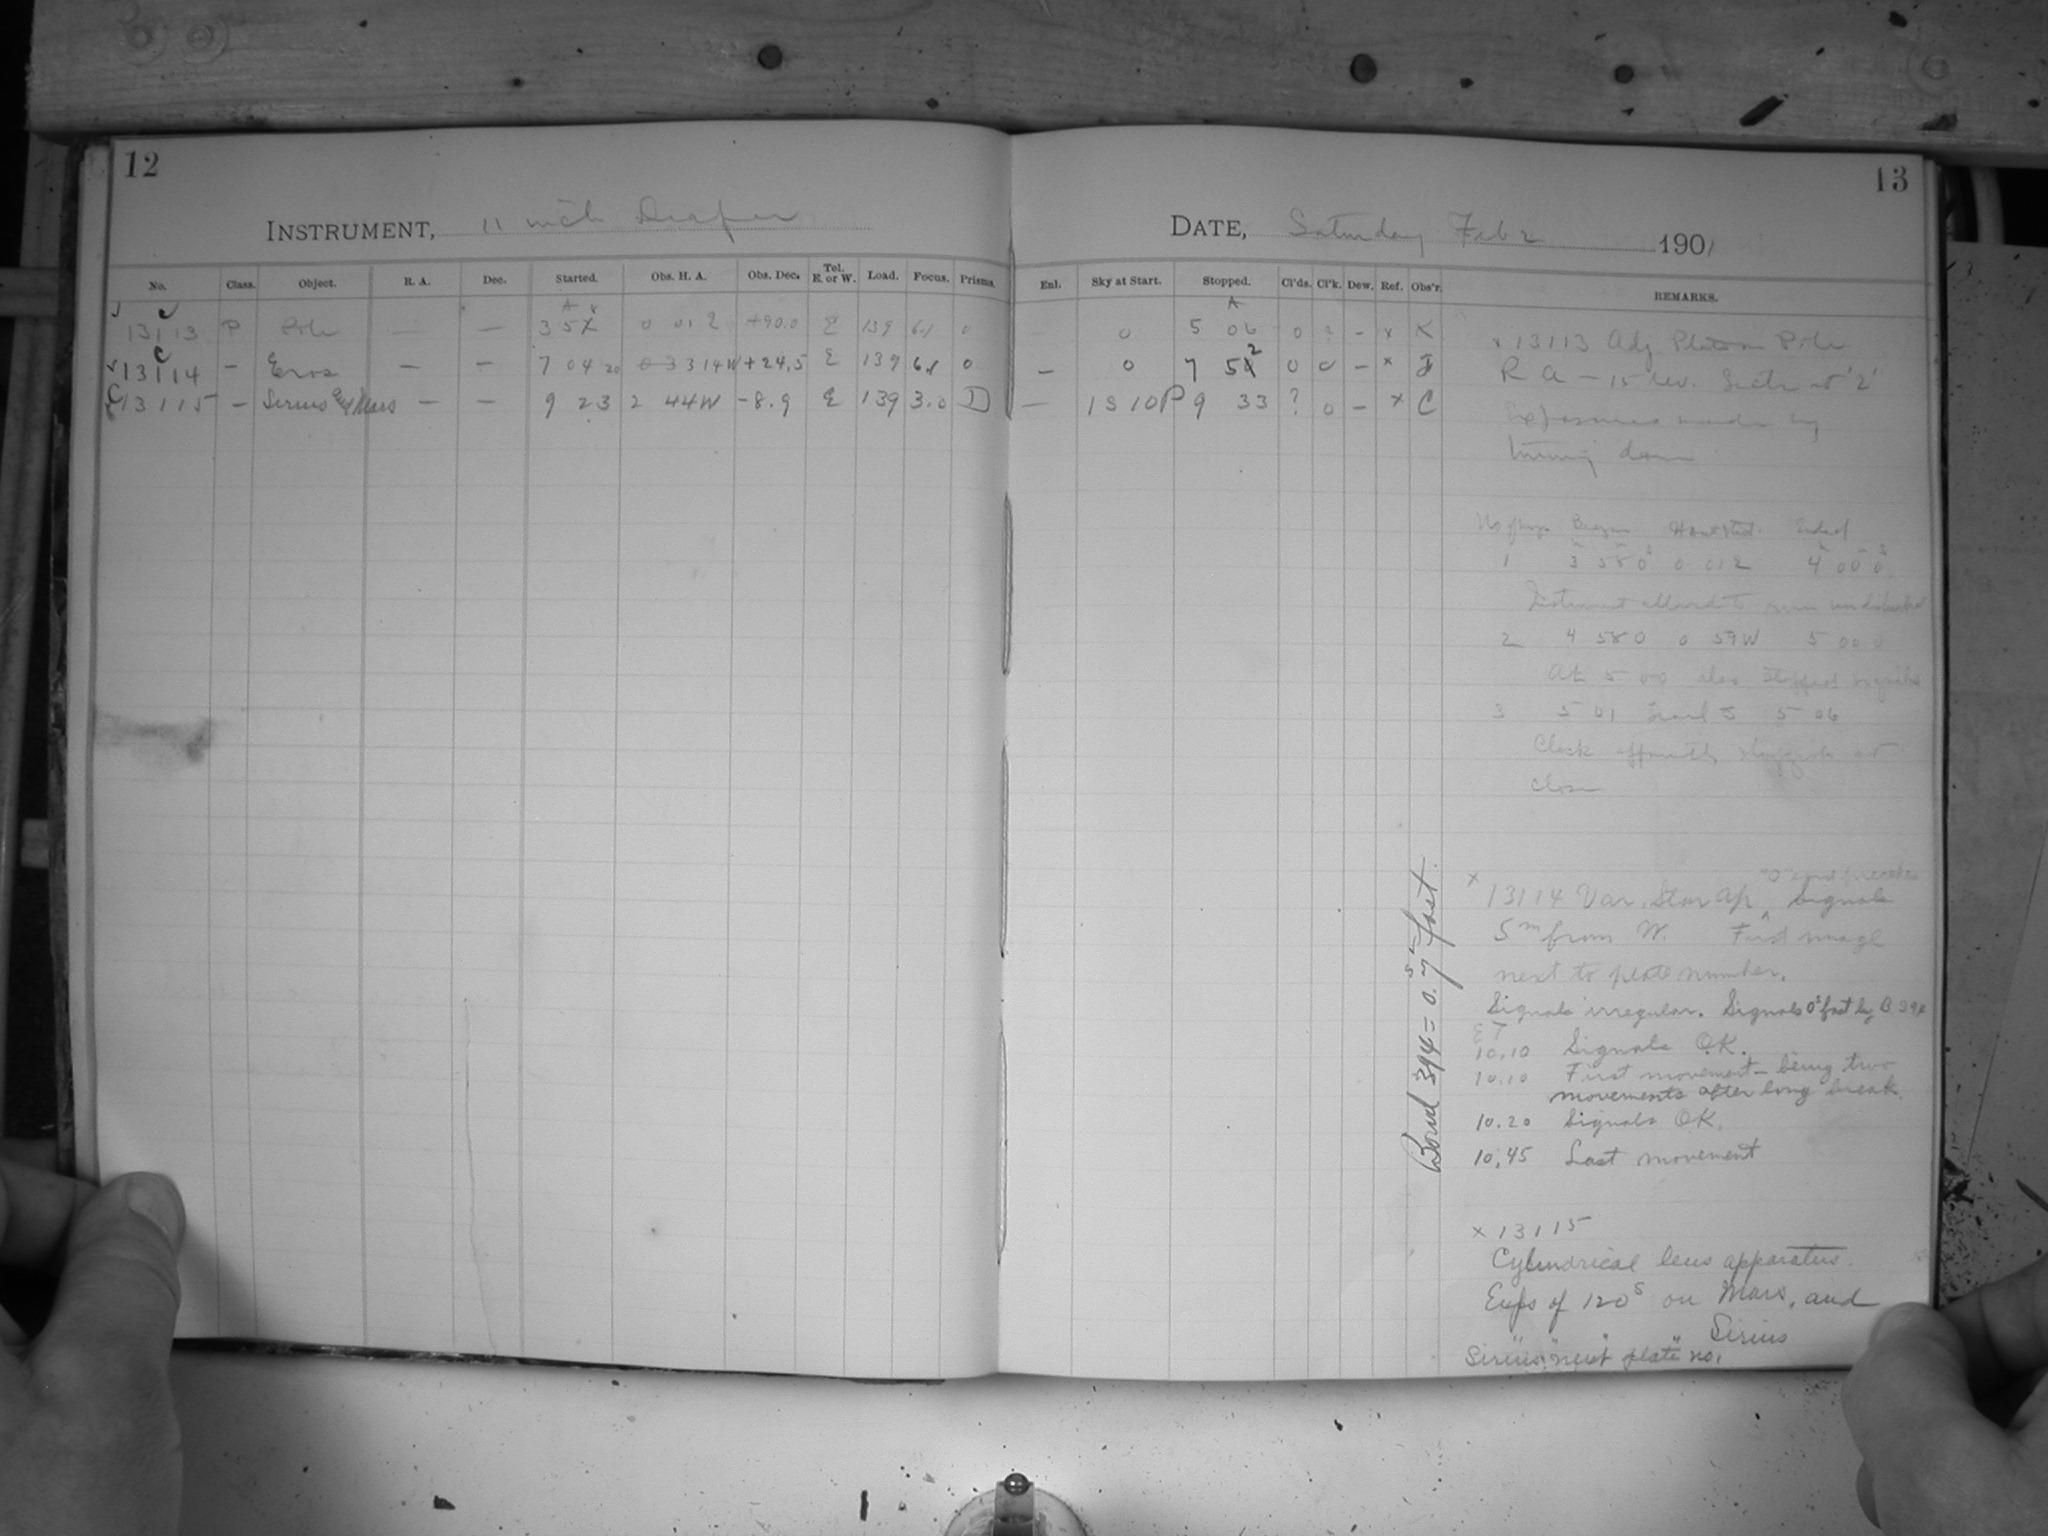 12
INSTRUMENT, 11 inch Draper
No. Class. Object. R. A. Dec. Started. Obs. H. A. Obs. Dec. Tel. E. or W. Load. Focus. Prisms.
13113 P Pole — — 3 0 01 2 +90.0 E 139 6.1 0
13114 — Eros — — 7 04 20 3 14 W +24.5 E 139 6.1 0
13115 — Sirius and Mars — — 9 23 2 44W -8.9 E 139 3.0 D
13
DATE, Saturday Feb 2 1901
Enl. Sky at Start. Stopped. Cl'ds. Cl'k. Dew. Ref. Obs'r. REMARKS.
0 5 06 0 ? – x K
— 0 7 52 0 0 – x
— 1S 10P 9 33 ? 0 – x C
x 13113 Adj Plate on Pole
RA – 15 rev. at "2"
Exposures made by
turning down
Began Ended
1 3 58 0 0 01 2 4 00 0
Instrument allowed to run undisturbed
2 4 58 0 0 59W 5 00 0
At 5 00 also stopped
3 5 01 Trail to 5 06
Clock apparently sluggish at
close
x 13114 Var. Star Ap. Signals
5m from W. First image
next to plate number.
Signals irregular. Signals 0s fast by B 394
E T
10.10 Signals OK.
10.10 First movement – being two
movements after long break.
10.20 Signals OK.
10.45 Last movement
Bond 394 = 0.s7 fast.
x 13115
Cylindrical lens apparatus.
Exps of 120s on Mars, and
Sirius
Sirius "next" plate no.